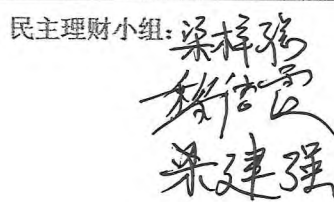 民主理财小组：梁梓强
梁建强